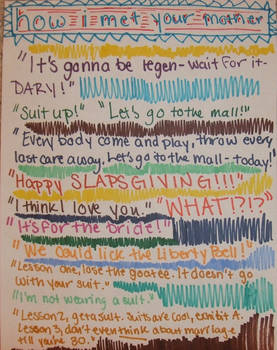 how i met your mother
"It's gonna be legen-wait for it-
DARY!"
"Suit up!" "Let's go to the mall!"
"Everybody come and play, throw every
last care away, Let's go to the mall-today!"
"Happy SLAPSGIVING!!!"
"I think I love you." "WHAT!?!?"
"It's for the bride!"
"We could lick the Liberty Bell!"
"Lesson one, lose the goatee. It doesn't go
with your suit."
"I'm not wearing a suit."
"Lesson 2, get a suit. Suits are cool, exhibit A.
Lesson 3, don't even think about marriage
till you're 30."